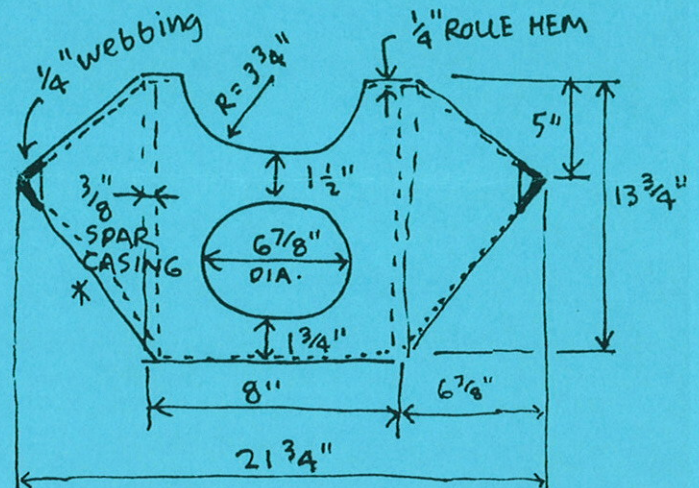 1/4" webbing
1/4" ROLLE HEM
R = 3 3/4"
5"
1 1/2"
13 3/4"
3/8"
SPAR
CASING
*
6 7/8"
DIA.
1 3/4"
8"
6 7/8"
21 3/4"